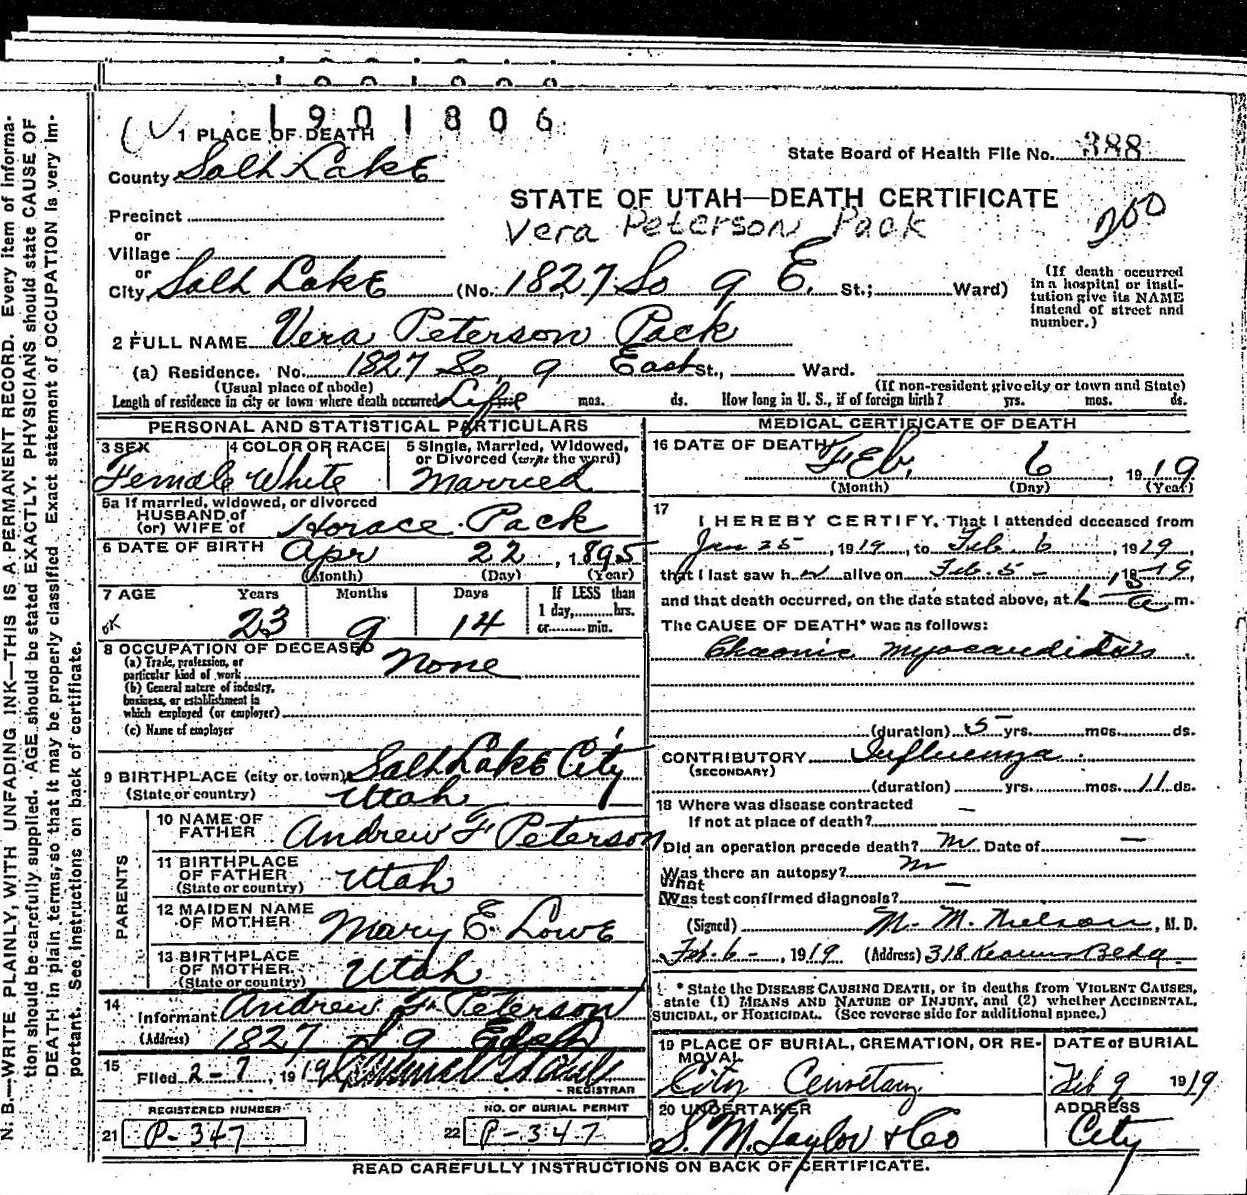 1901806
1 PLACE OF DEATH
State Board of Health File No. 388
County Salt Lake
STATE OF UTAH—DEATH CERTIFICATE
Precinct
Vera Peterson Pack
200
or
Village
or
City Salt Lake (No. 1827 So 9 E. St.; Ward)
(If death occurred
in a hospital or insti-
tution give its NAME
instead of street and
number.)
2 FULL NAME Vera Peterson Pack
(a) Residence. No. 1827 So, 9 East St., Ward.
(Usual place of abode) (If non-resident give city or town and State)
Length of residence in city or town where death occurred Life mos. ds. How long in U. S., if of foreign birth? yrs. mos. ds.
PERSONAL AND STATISTICAL PARTICULARS
3 SEX 4 COLOR OR RACE 5 Single, Married, Widowed,
or Divorced (write the word)
Female White Married
5a If married, widowed, or divorced
HUSBAND of
(or) WIFE of Horace Pack
6 DATE OF BIRTH Apr 22, 1895
(Month) (Day) (Year)
7 AGE Years Months Days If LESS than
1 day, hrs.
or min.
OK 23 9 14
8 OCCUPATION OF DECEASED
(a) Trade, profession, or
particular kind of work None
(b) General nature of industry,
business, or establishment in
which employed (or employer)
(c) Name of employer
9 BIRTHPLACE (city or town) Salt Lake City
(State or country) Utah
PARENTS
10 NAME OF
FATHER Andrew F Peterson
11 BIRTHPLACE
OF FATHER
(State or country) Utah
12 MAIDEN NAME
OF MOTHER Mary E. Lowe
13 BIRTHPLACE
OF MOTHER
(State or country) Utah
14
Informant Andrew F. Peterson
(Address) 1827 S 9 East
15
Filed 2-7, 1919
REGISTRAR
REGISTERED NUMBER NO. OF BURIAL PERMIT
21 P-347 22 P-347
MEDICAL CERTIFICATE OF DEATH
16 DATE OF DEATH Feb. 6, 1919
(Month) (Day) (Year)
17
I HEREBY CERTIFY, That I attended deceased from
Jan 25, 1919, to Feb. 6, 1919,
that I last saw h er alive on Feb. 5-, 1919,
and that death occurred, on the date stated above, at 1 15 a m.
The CAUSE OF DEATH* was as follows:
Chronic Myocarditis
(duration) 5 yrs. mos. ds.
CONTRIBUTORY Influenza
(SECONDARY)
(duration) yrs. mos. 11 ds.
18 Where was disease contracted
If not at place of death? —
Did an operation precede death? no Date of —
Was there an autopsy? no
What
Was test confirmed diagnosis? —
(Signed) M. M. Nielson, M. D.
Feb. 6-, 1919 (Address) 318 Kearns Bldg.
* State the DISEASE CAUSING DEATH, or in deaths from VIOLENT CAUSES,
state (1) MEANS AND NATURE OF INJURY, and (2) whether ACCIDENTAL,
SUICIDAL, or HOMICIDAL. (See reverse side for additional space.)
19 PLACE OF BURIAL, CREMATION, OR RE-
MOVAL
City Cemetary
DATE of BURIAL
Feb 9 1919
20 UNDERTAKER
S. M. Taylor & Co
ADDRESS
City
READ CAREFULLY INSTRUCTIONS ON BACK OF CERTIFICATE.
N. B.—WRITE PLAINLY, WITH UNFADING INK—THIS IS A PERMANENT RECORD. Every item of informa-
tion should be carefully supplied. AGE should be stated EXACTLY. PHYSICIANS should state CAUSE OF
DEATH in plain terms, so that it may be properly classified. Exact statement of OCCUPATION is very im-
portant. See instructions on back of certificate.